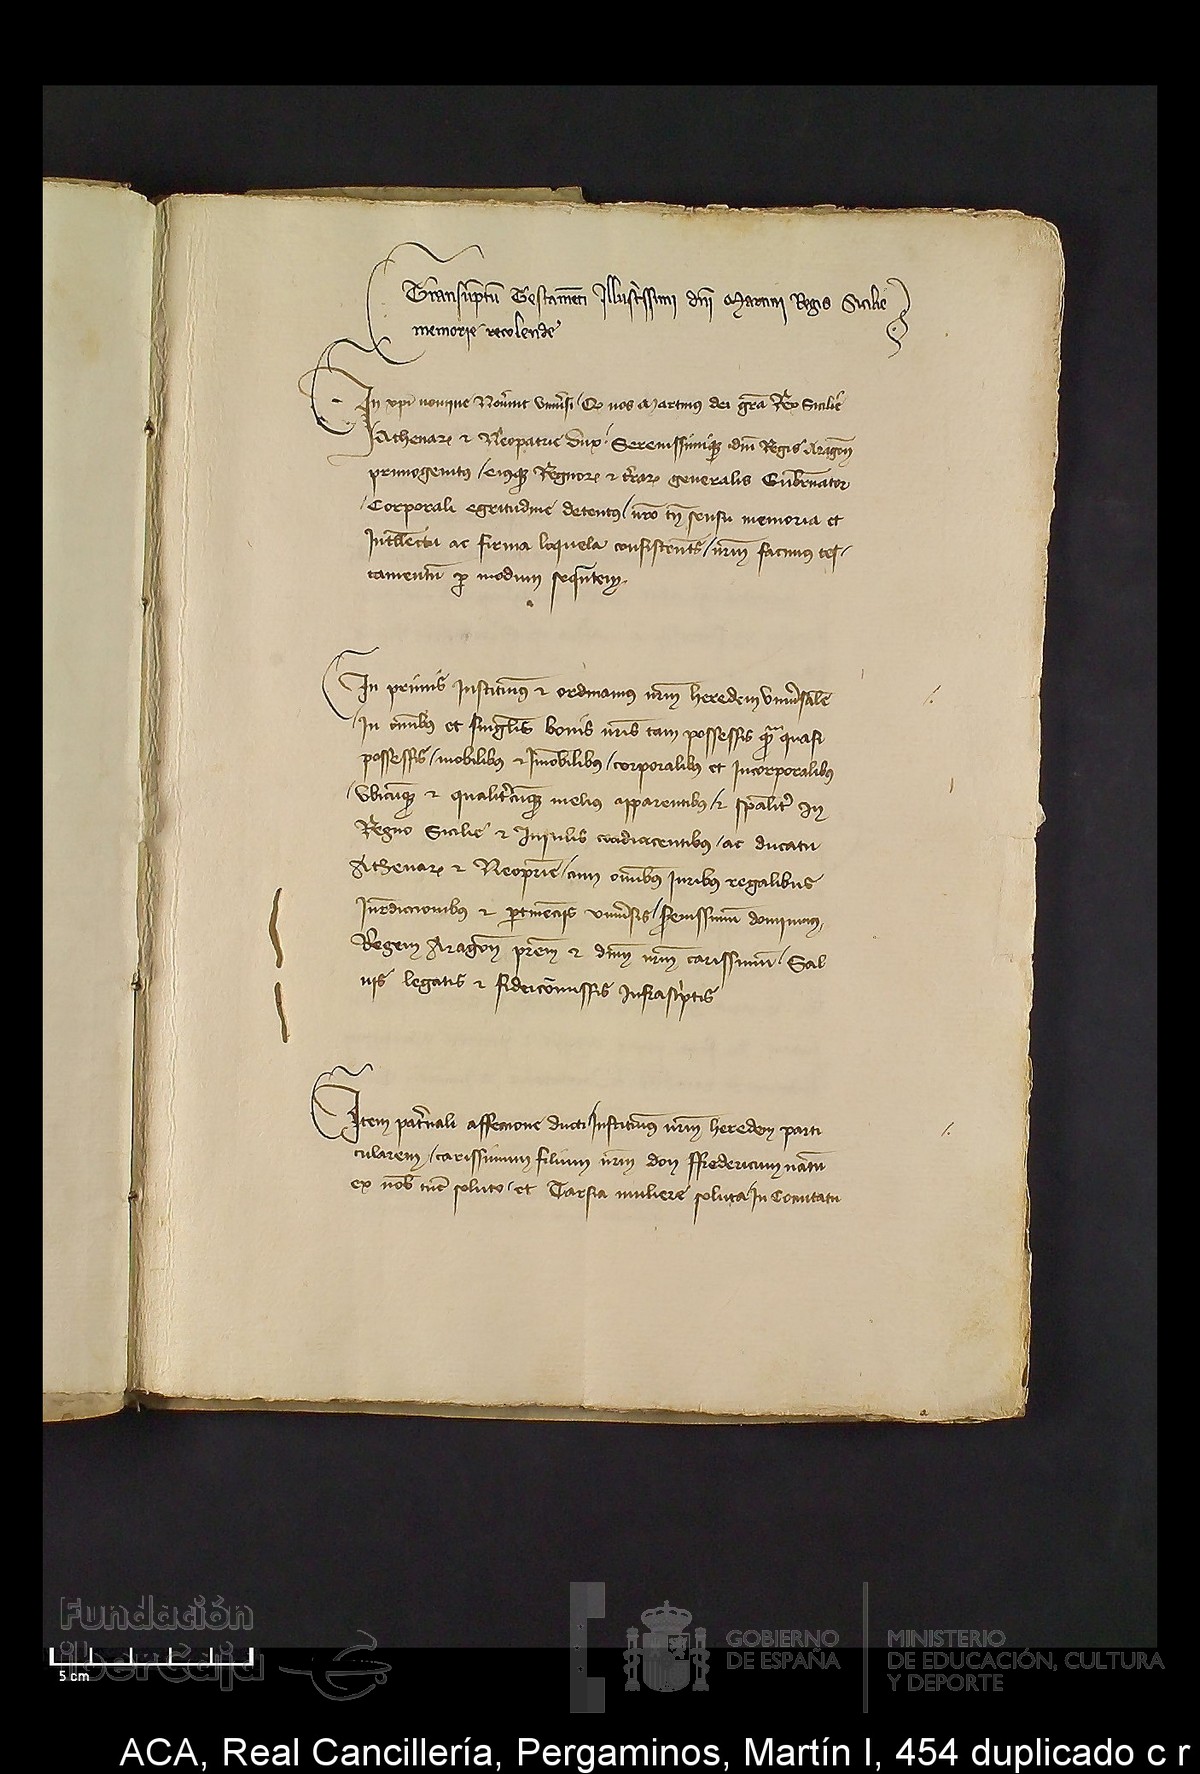 Transu͂ptu͂ Testame͂ti Illustrissimi dn͂i Martini Regis Sicilie
memorie recolende
In xpi͂ nomine Nov͂int univ͂si Q͂ nos Martinus dei gr͂a Rex Sicilie
Athenar͂ et Neopatrie dux Serenissimiq͂ dn͂i Regis Aragon͂
primogenitus / eiusq͂ Regnor͂ et t͂rar͂ generalis Gub͂nator
Corporali egritudine detentus / n͂ro tn͂ sensu memoria et
Intell͂ectu ac firma loquela consistentes / n͂rm facimus tes
tamentu͂ p͂ modum seque͂tem
In primis Instituimus et ordinamus n͂rm heredem univ͂sale͂
In om͂ibus et singul͂is bonis n͂ris tam possessis q͂m quasi
possessis / mobilibus et Im͂obilibus / corporalibus et Incorporalibus
Ubicu͂q͂ et qualit͂cu͂q͂ melius apparentibus / et sp͂alit͂ in
Regno Sicilie et Insulis coadiacentibus / ac ducatu
Athenar͂ et Neop͂rie / cum om͂ibus Iuribus regalibus
Iur͂diccionibus et p͂tinen͂ciis univ͂sis / s͂enissimu͂ dominum
Regem Aragon͂ p͂rem et dn͂m n͂rm carissimu͂ / Sal
vis legatis et fideicom͂issis Infrascriptis
Item pat͂nali affeccione ducti Instituim͂us n͂rm heredem parti
cularem / carissimum filium n͂rm don ffredericum natu͂
ex nob͂ tu͂c soluto / et Tarsia muliere soluta In Comitatu
Fundación
iberCaja
5 cm
GOBIERNO
DE ESPAÑA
MINISTERIO
DE EDUCACIÓN, CULTURA
Y DEPORTE
ACA, Real Cancillería, Pergaminos, Martín I, 454 duplicado c r